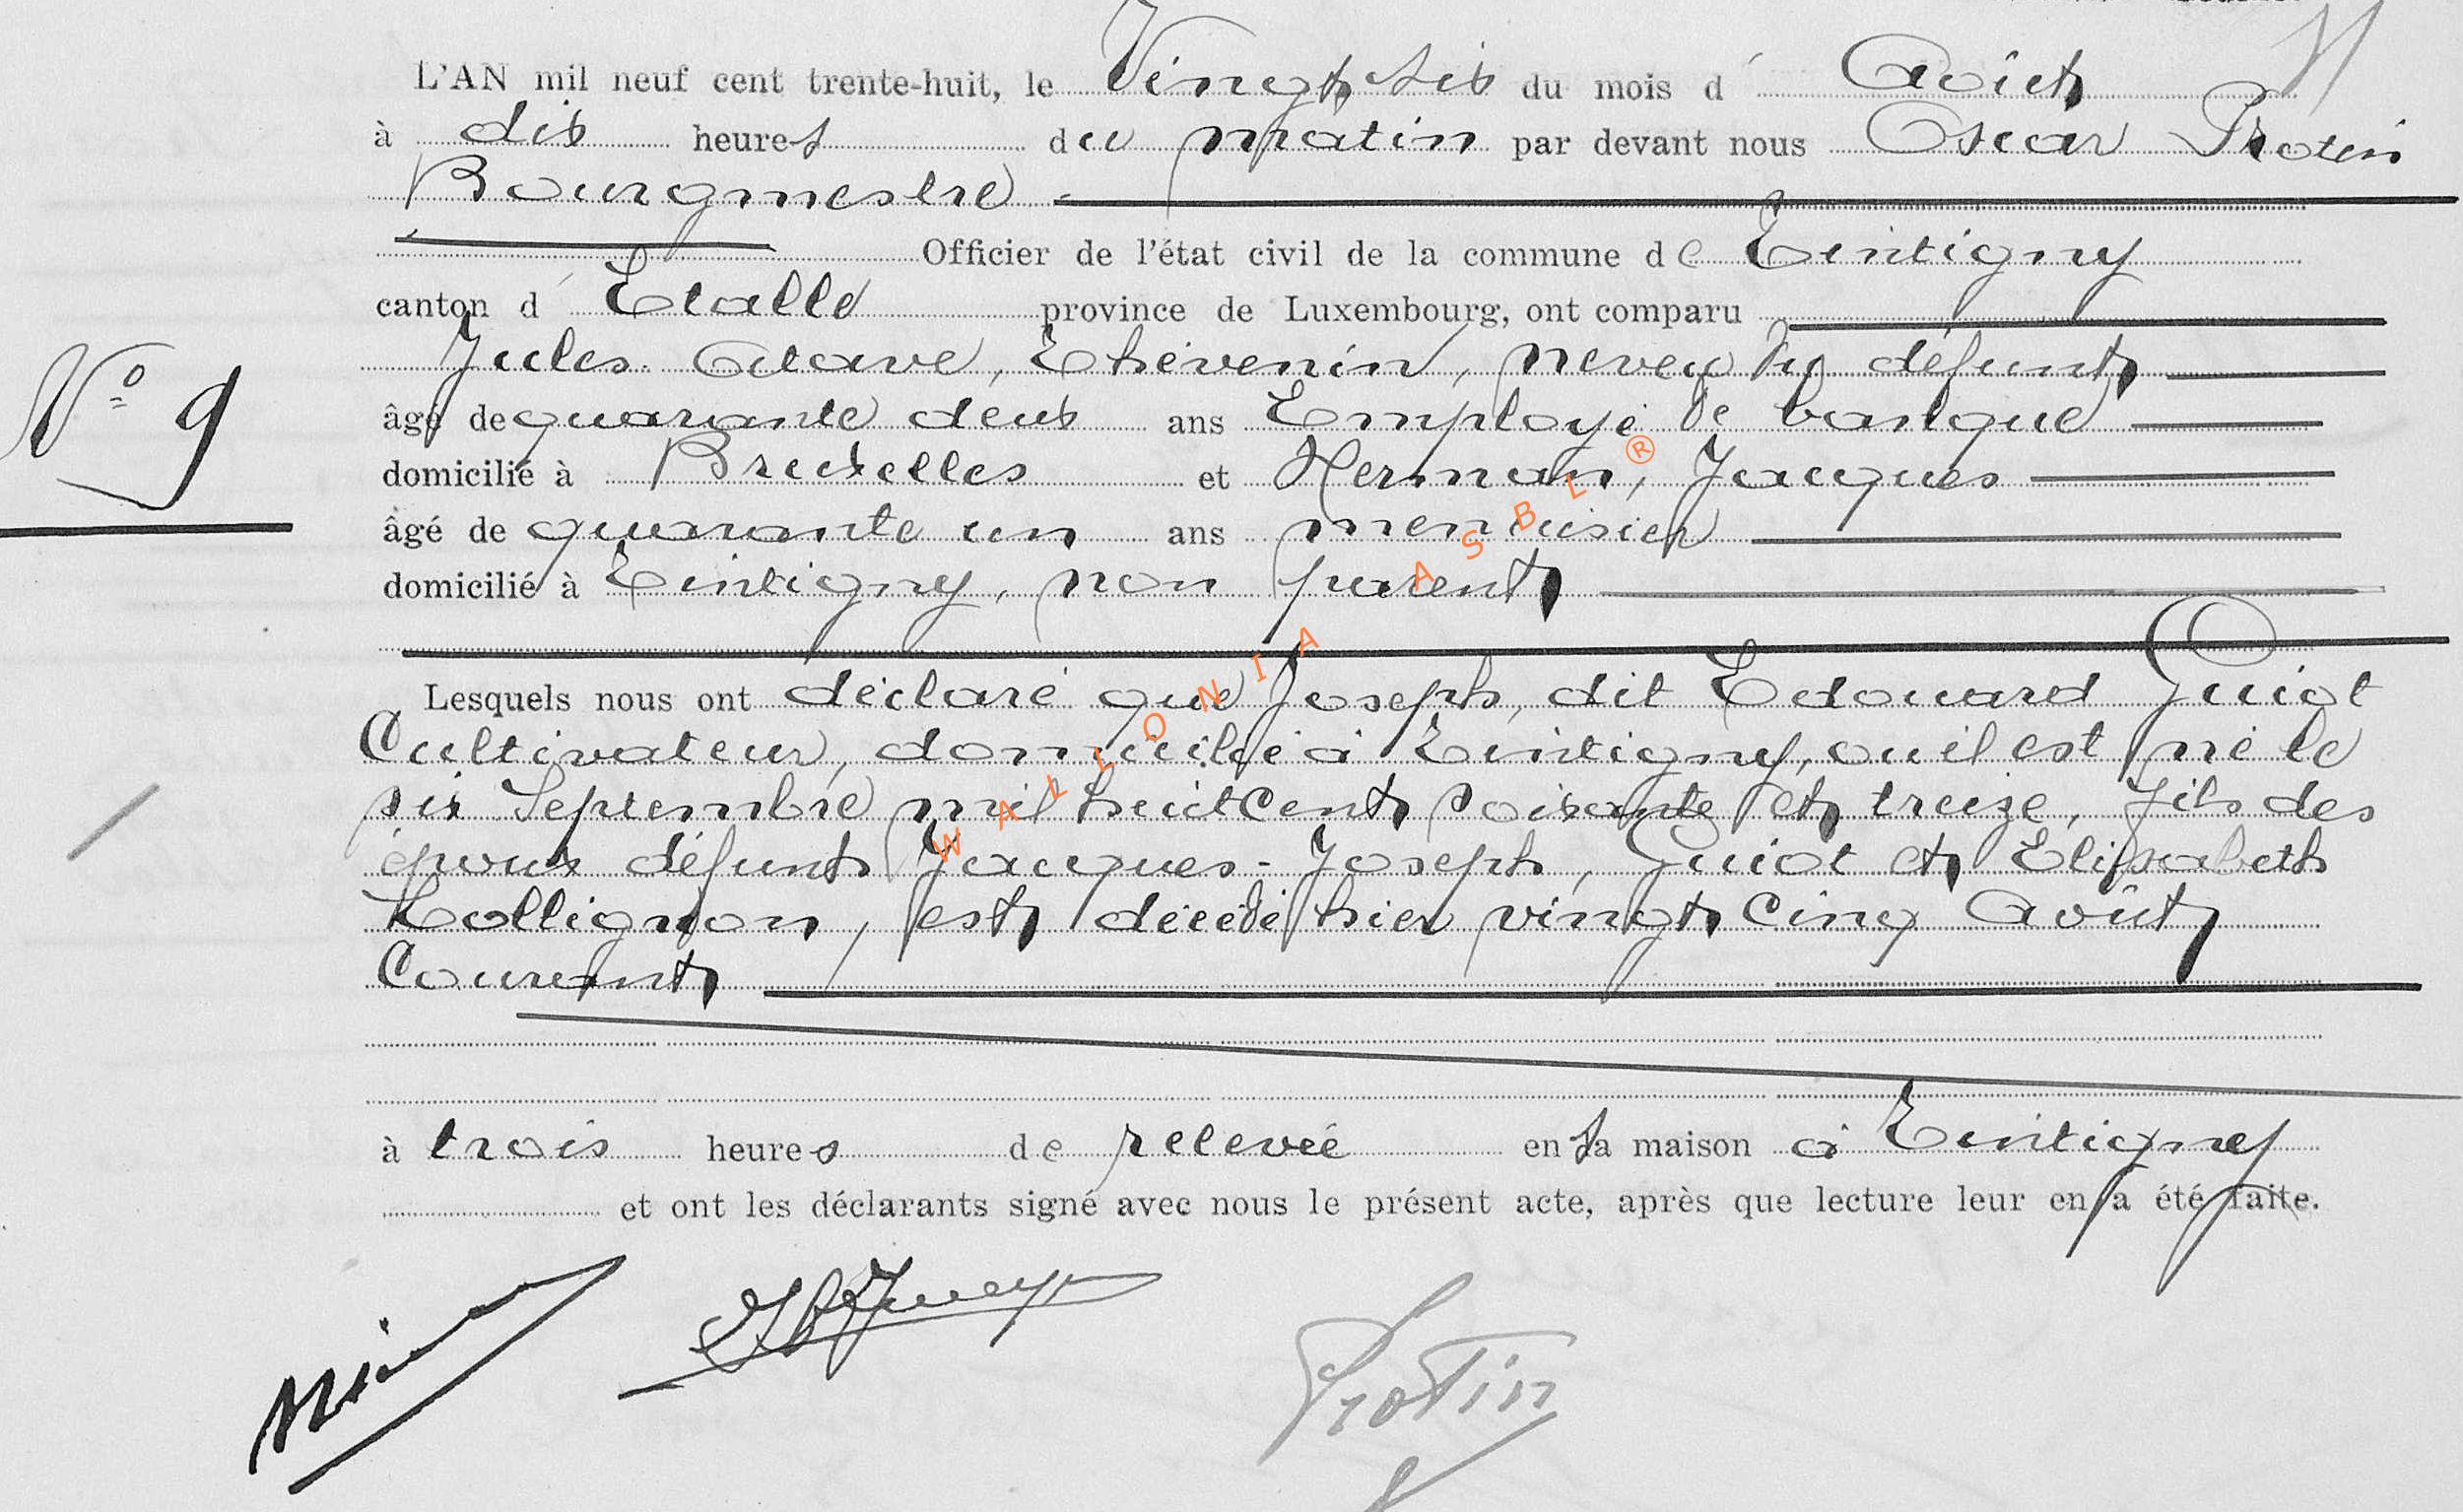 L'AN mil neuf cent trente-huit, le Vingt six du mois d' Août
à dix heures du matin par devant nous Oscar Protin
Bourgmestre
Officier de l'état civil de la commune de Tintigny
canton d' Etalle province de Luxembourg, ont comparu
Jules Octave, Thévenin, neveu du défunt
N° 9
âgé de quarante deux ans Employé de banque
domicilié à Bruxelles et Herman, Jacques
âgé de quarante un ans menuisier
domicilié à Tintigny, non parent
Lesquels nous ont déclaré que Joseph, dit Edouard Guiot
Cultivateur, domicilié à Tintigny, ou il est né le
six Septembre mil huit cent soixante et treize, fils des
époux défunts Jacques-Joseph, Guiot et Elisabeth
Collignon, est décédé hier vingt cinq Août
Courant
à trois heures de relevée en sa maison à Tintigny
et ont les déclarants signé avec nous le présent acte, après que lecture leur en a été faite.
Protin
WALLONIA ASBL ®